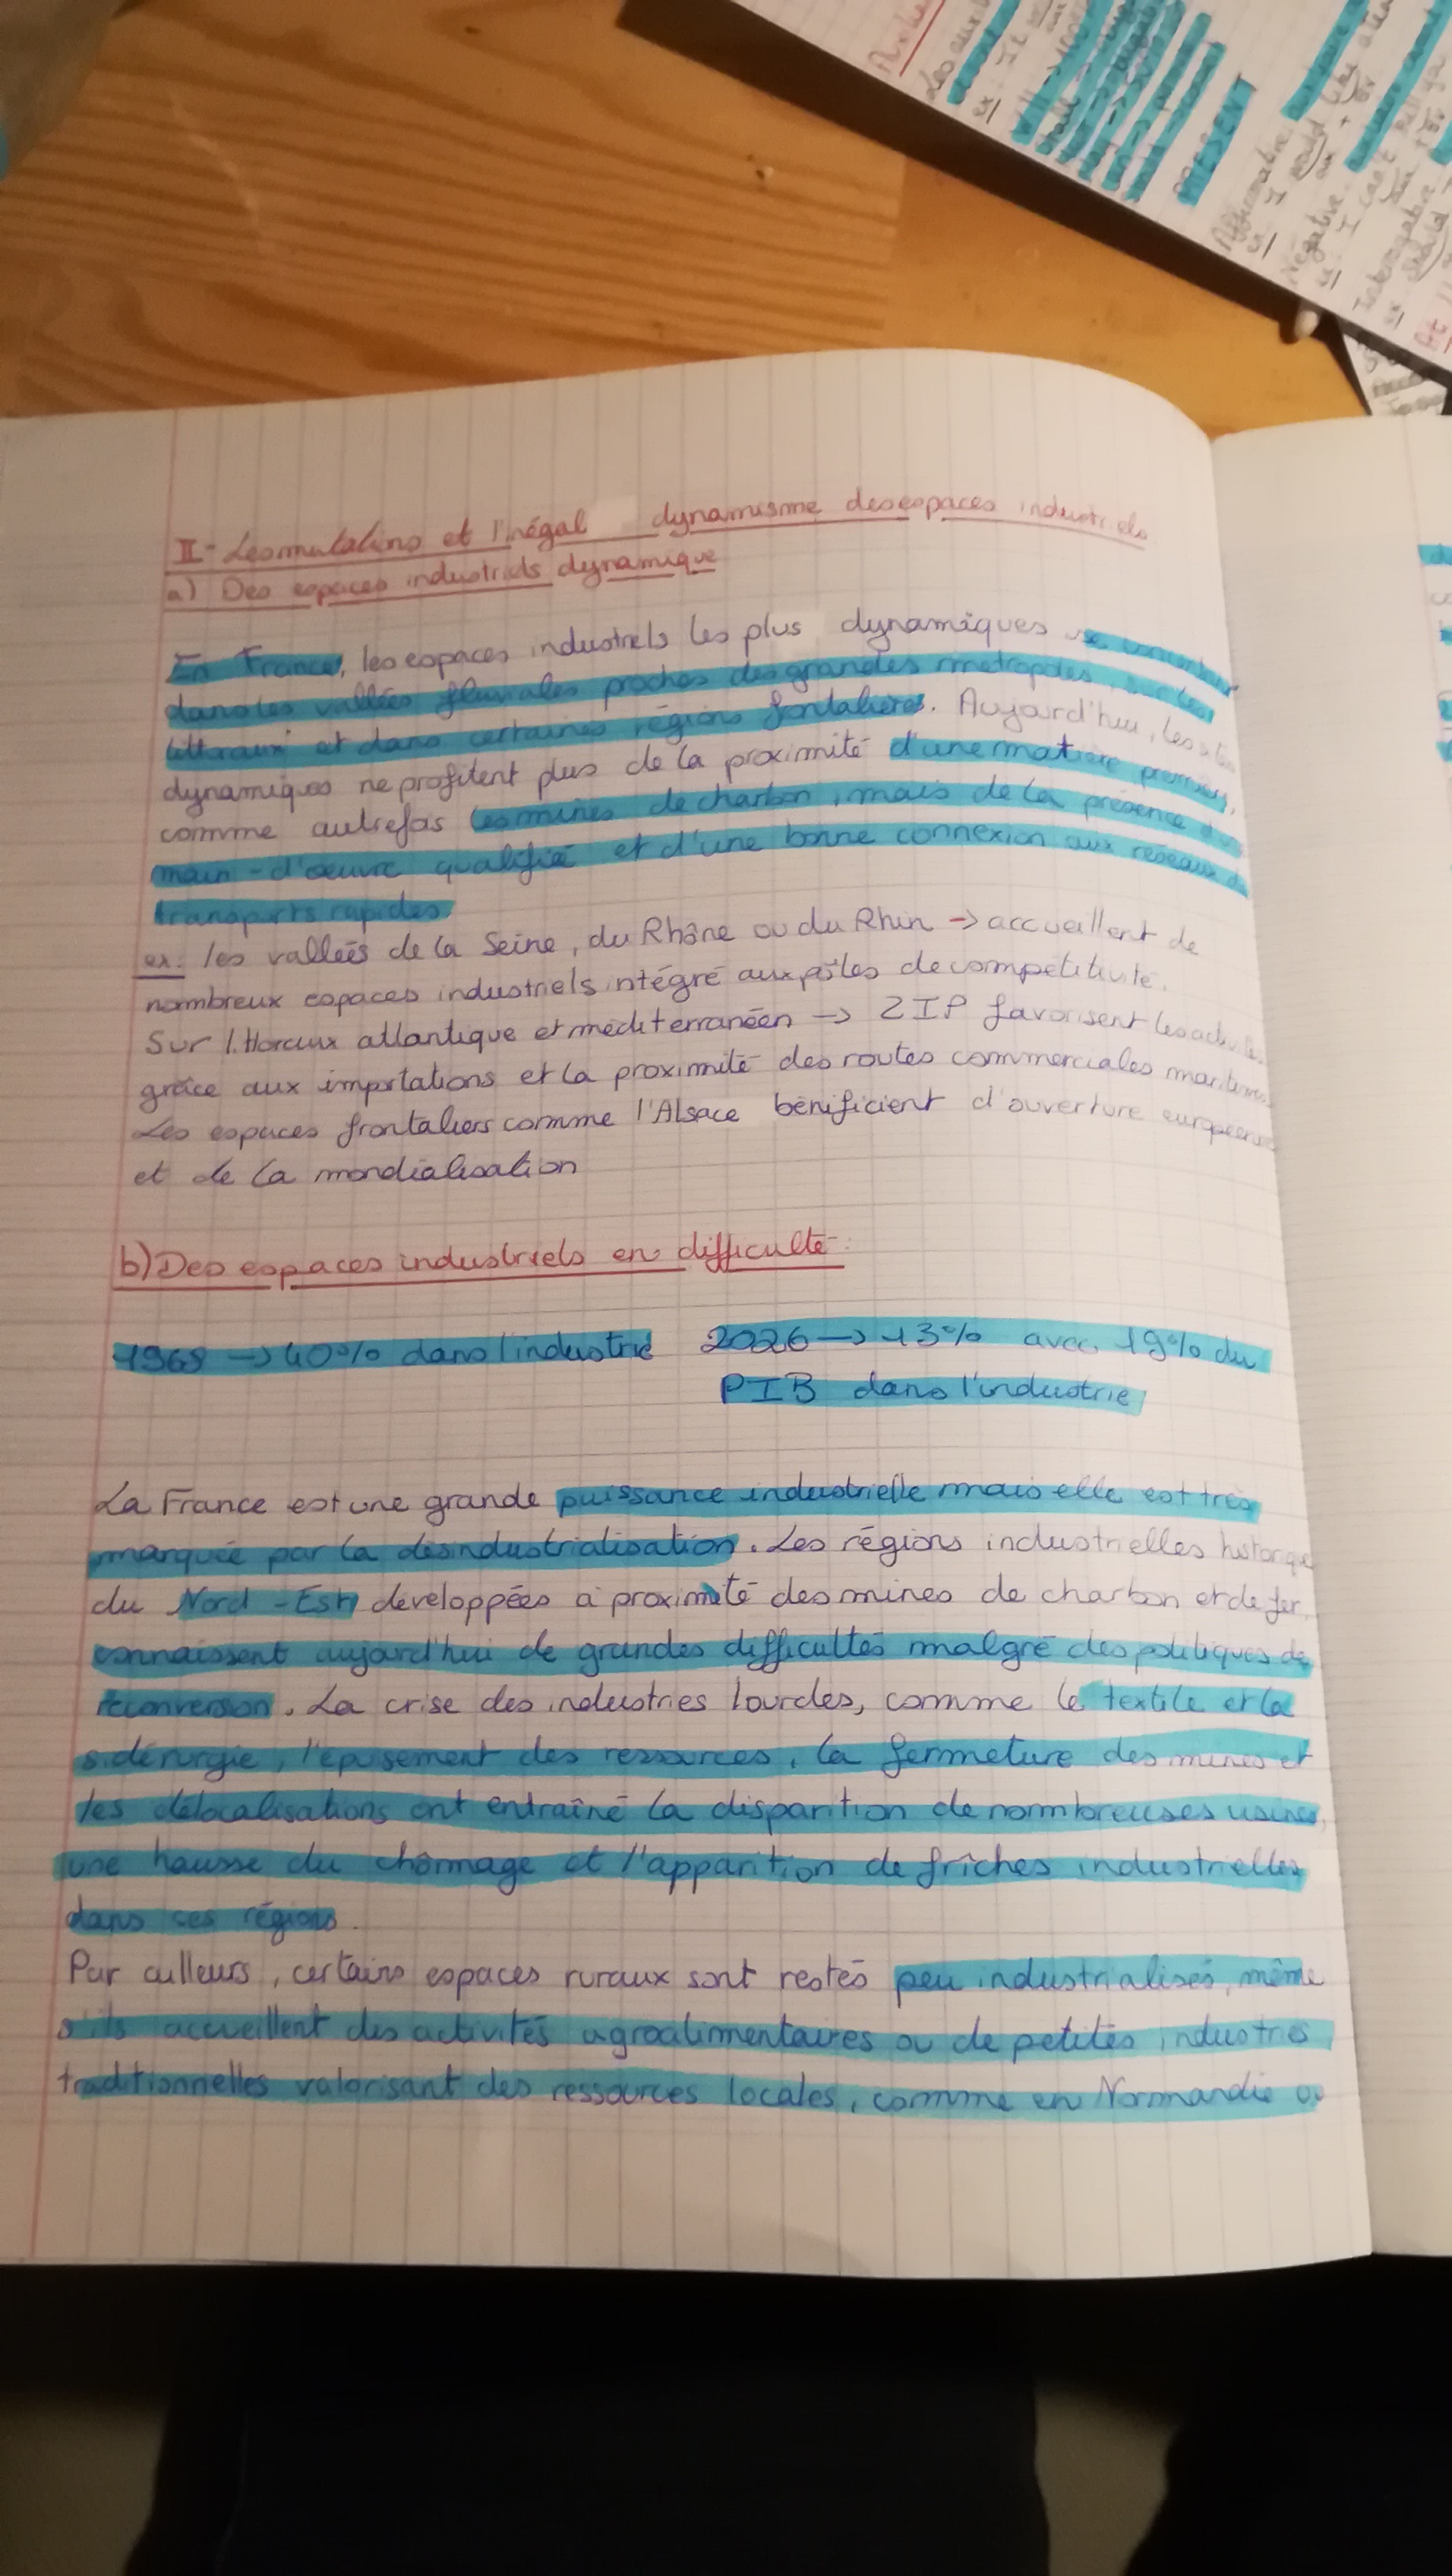 II - Les mutations et l'inégal dynamisme des espaces industriels
a) Des espaces industriels dynamique
En France, les espaces industriels les plus dynamiques se concentrent
dans les vallées fluviales proches des grandes métropoles, sur les
littoraux et dans certaines régions frontalières. Aujourd'hui, les sites
dynamiques ne profitent plus de la proximité d'une matière première,
comme autrefois les mines de charbon, mais de la présence d'une
main-d'œuvre qualifié et d'une bonne connexion aux réseaux de
transports rapides.
ex: les vallées de la Seine, du Rhône ou du Rhin -> accueillent de
nombreux espaces industriels intégré aux pôles de compétitivité.
Sur littoraux atlantique et méditerranéen -> ZIP favorisent les activités
grâce aux importations et la proximité des routes commerciales maritimes.
Les espaces frontaliers comme l'Alsace bénificient d'ouverture européenne
et de la mondialisation
b) Des espaces industriels en difficulté:
-> 40% dans l'industrie 2026 -> 13% avec 19% du
PIB dans l'industrie
La France est une grande puissance industrielle mais elle est très
marquée par la désindustrialisation. Les régions industrielles historiques
du Nord-Est, développées à proximité des mines de charbon et de fer,
connaissent aujourd'hui de grandes difficultés malgré des politiques de
reconversion. La crise des industries lourdes, comme le textile et la
sidérurgie, l'épuisement des ressources, la fermeture des mines et
les délocalisations ont entraîné la disparition de nombreuses usines,
une hausse du chômage et l'apparition de friches industrielles
dans ces régions.
Par ailleurs, certains espaces ruraux sont restés peu industrialisés, même
s'ils accueillent des activités agroalimentaires ou de petites industries
traditionnelles valorisant des ressources locales, comme en Normandie ou
PRESENT
Affirmative
Négative